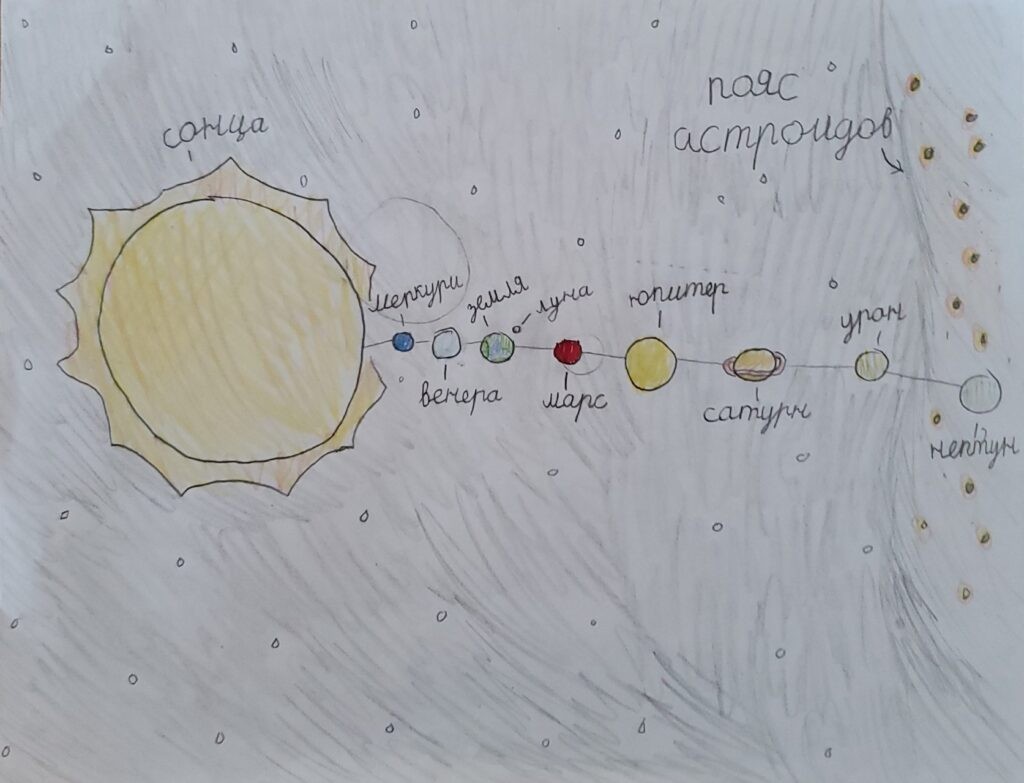 сонца
пояс
астроидов
меркури
венера
земля
луна
марс
юпитер
сатурн
уран
нептун